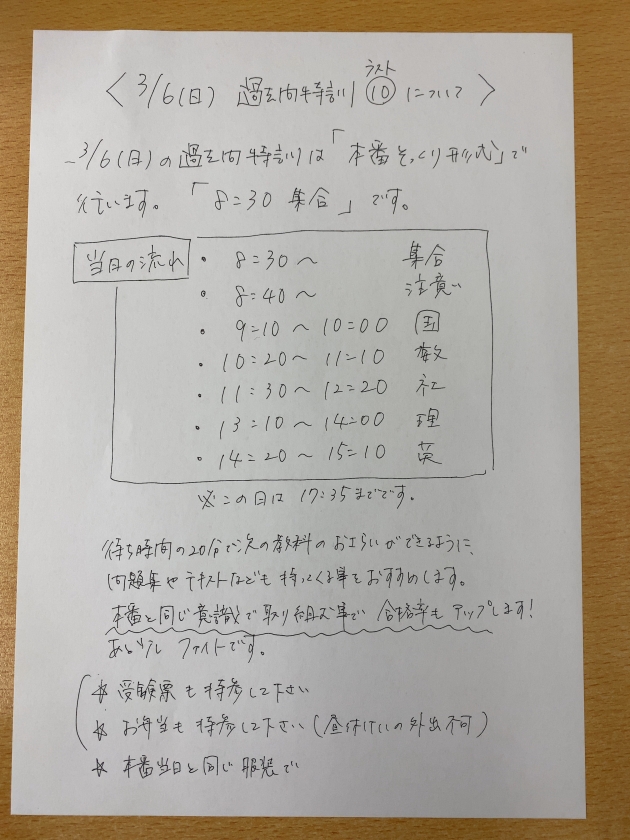 〈 3/6(日) 過去問特訓 ラスト ⑩ について 〉
3/6(日)の過去問特訓は「本番そっくり形式」で
行います。「8:30 集合」です。
当日の流れ
・ 8:30 〜 集合
・ 8:40 〜 注意
・ 9:10 〜 10:00 国
・ 10:20 〜 11:10 数
・ 11:30 〜 12:20 社
・ 13:10 〜 14:00 理
・ 14:20 〜 15:10 英
※この日は 17:35までです。
待ち時間の20分で次の教科のおさらいができるように、
問題集やテキストなども持ってくる事をおすすめします。
本番と同じ意識で取り組む事で 合格率も アップします!
あと少し ファイトです。
☆ 受験票も持参して下さい
☆ お弁当も持参して下さい(昼休けいの外出不可)
☆ 本番当日と同じ服装で